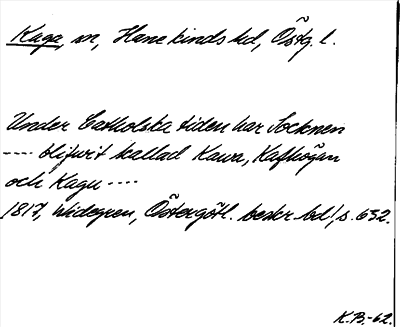 Kaga, sn, Hanekinds hd, Östg. l.
Under Catholska tiden har Socknen
---- blifwit kallad Kawa, Kafhögan
och Kagu ----
1817, Widegren, Östergötl. beskr. bd 1, s. 632.
K.B.-62.